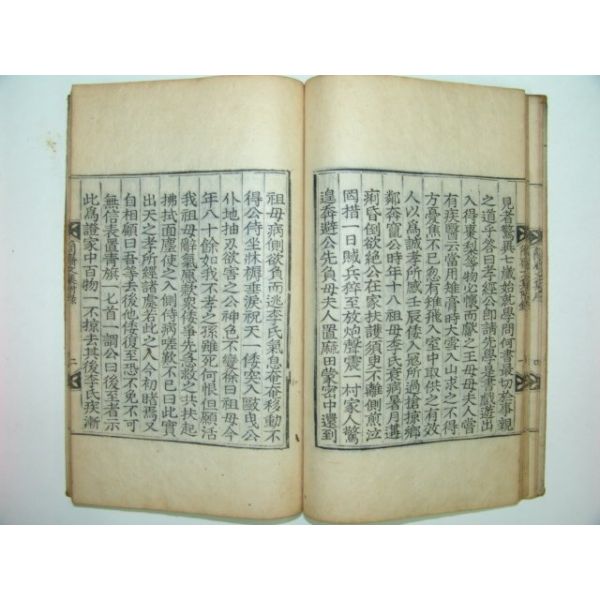 見者驚異七歲始就學問何書最切於事親
之道乎答曰孝經公卽請先學是書戲遊出
入得棗梨等物心懷而獻之王母母夫人嘗
有疾醫云當用雉膏時大雪入山求之不得
方憂焦不已忽有雉飛入室中取供之有效
人以爲誠孝所感壬辰倭人寇所過搶掠鄉
鄰奔竄公時年十八祖母李氏衰病暑月遘
痢昏倒欲絶公在家扶護須臾不離側煎泣
罔措一日賊兵猝至放炮聲震一村家人驚
遑奔避公先負母夫人置麻田蒙密中還到
祖母病側欲負而逃李氏氣息奄奄移動不
得公侍坐牀褥垂淚祝天一倭突入毆曳公
仆地抽刃欲害之公神色不變徐曰祖母今
年八十餘如我不孝之孫雖死何恨但願活
我祖母辭氣懇歎衆倭爭先救之共扶起
拂拭面塵使之入側侍病嗟歎不已曰此實
出天之孝所經諸處若此之人今初睹焉又
自相顧曰吾等去後他倭復至恐不免不可
無信表置靑旗一匕首一謂公曰後至者示
此爲證家中百物一不掠去其後李氏疾漸
二